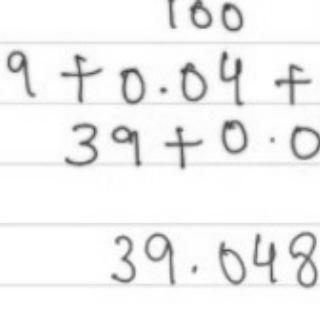 100
9 + 0.04 +
39 + 0.0
39.048